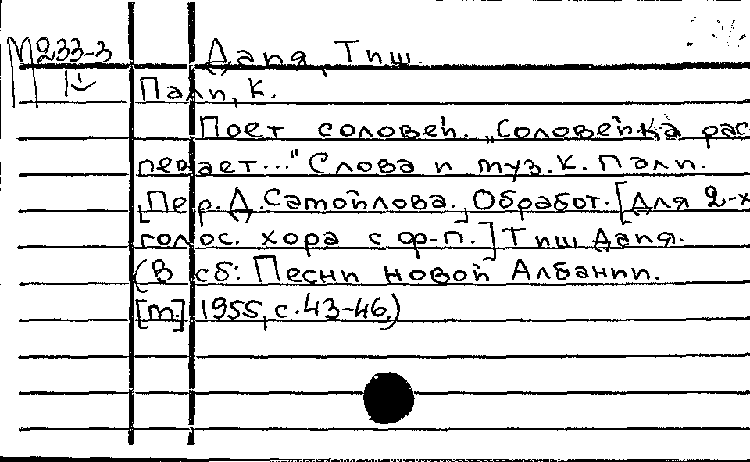 М233-3 Дапя, Тиш.
Пали, К.
Поет соловей. „Соловейка рас
певает..." Слова и муз. К. Пали.
[Пер. Д. Самойлова.] Обработ. [для 2-х
голос. хора с ф-п.] Тиш Дапя.
(В сб: Песни новой Албании.
[м.] 1955, с. 43-46.)